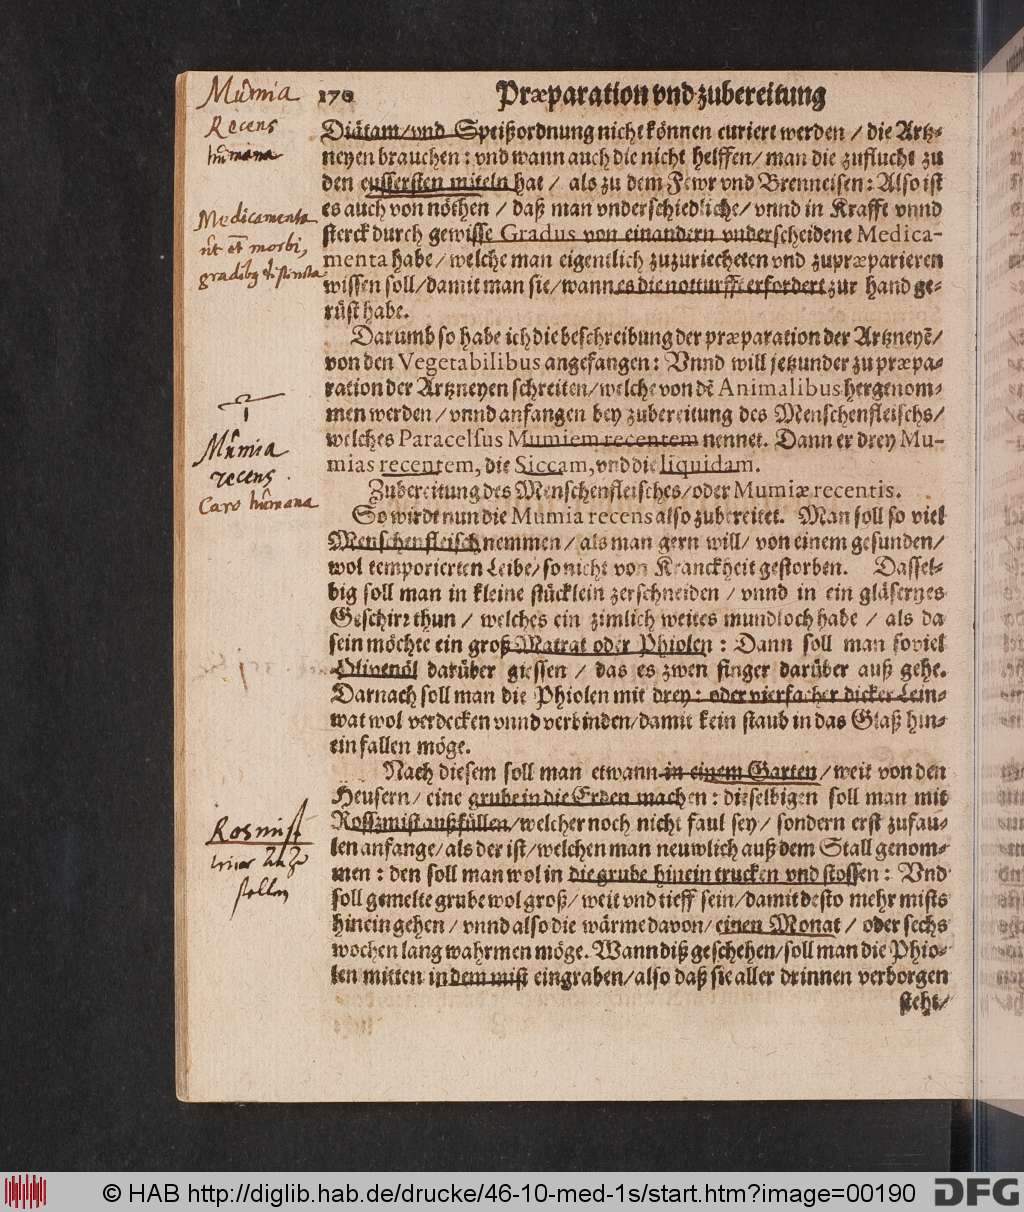 170 Præparation vnd zubereitung
Diätam/vnd Speißordnung nicht können curiert werden / die Artz⸗
neyen brauchen: vnd wann auch die nicht helffen/ man die zuflucht zu
den eussersten miteln hat / als zu dem Fewr vnd Brenneisen: Also ist
es auch von nöthen / daß man vnderschiedliche/ vnnd in Krafft vnnd
sterck durch gewisse Gradus von einandern vnderscheidene Medica-
menta habe/ welche man eigentlich zuzuriecheten vnd zupræparieren
wissen soll/damit man sie/wann es die notturfft erfordert zur hand ge⸗
rüst habe.
Darumb so habe ich die beschreibung der præparation der Artzneyẽ/
von den Vegetabilibus angefangen: Vnnd will jetzunder zu præpa⸗
ration der Artzneyen schreiten/welche von dẽ Animalibus hergenom⸗
men werden / vnnd anfangen bey zubereitung des Menschenfleischs/
welches Paracelsus Mumiem recentem nennet. Dann er drey Mu-
mias recentem, die Siccam, vnd die liquidam.
Zubereitung des Menschenfleisches/oder Mumiæ recentis.
So wirdt nun die Mumia recens also zubereitet. Man soll so viel
Menschenfleisch nemmen / als man gern will/ von einem gesunden/
wol temporierten Leibe/ so nicht von Kranckheit gestorben. Dassel⸗
big soll man in kleine stücklein zerschneiden / vnnd in ein gläsernes
Geschirr thun / welches ein zimlich weites mundloch habe / als da
sein möchte ein groß Matrat oder Phiolen: Dann soll man soviel
Olivenöl darüber giessen / das es zwen finger darüber auß gehe.
Darnach soll man die Phiolen mit drey: oder vierfacher dicker Lein⸗
wat wol verdecken vnnd verbinden/damit kein staub in das Glaß hin⸗
ein fallen möge.
Nach diesem soll man etwann in einem Garten/ weit von den
Heusern/ eine grube in die Erden machen: dieselbigen soll man mit
Rosszmist außfüllen/welcher noch nicht faul sey/ sondern erst zufau⸗
len anfange/als der ist/welchen man neuwlich auß dem Stall genom⸗
men: den soll man wol in die grube hinein trucken vnd stossen: Vnd
soll gemelte grube wol groß/ weit vnd tieff sein/damit desto mehr mists
hinein gehen/ vnnd also die wärme davon/ einen Monat / oder sechs
wochen lang wahrmen möge. Wann diß geschehen/soll man die Phio⸗
len mitten in dem mist eingraben/also daß sie aller drinnen verborgen
steht/
Mum̃ia
Recens
hũmana
Medicamenta
morbi,
Mũmia
recens.
Caro hũmana
Rosmist
© HAB http://diglib.hab.de/drucke/46-10-med-1s/start.htm?image=00190
DFG